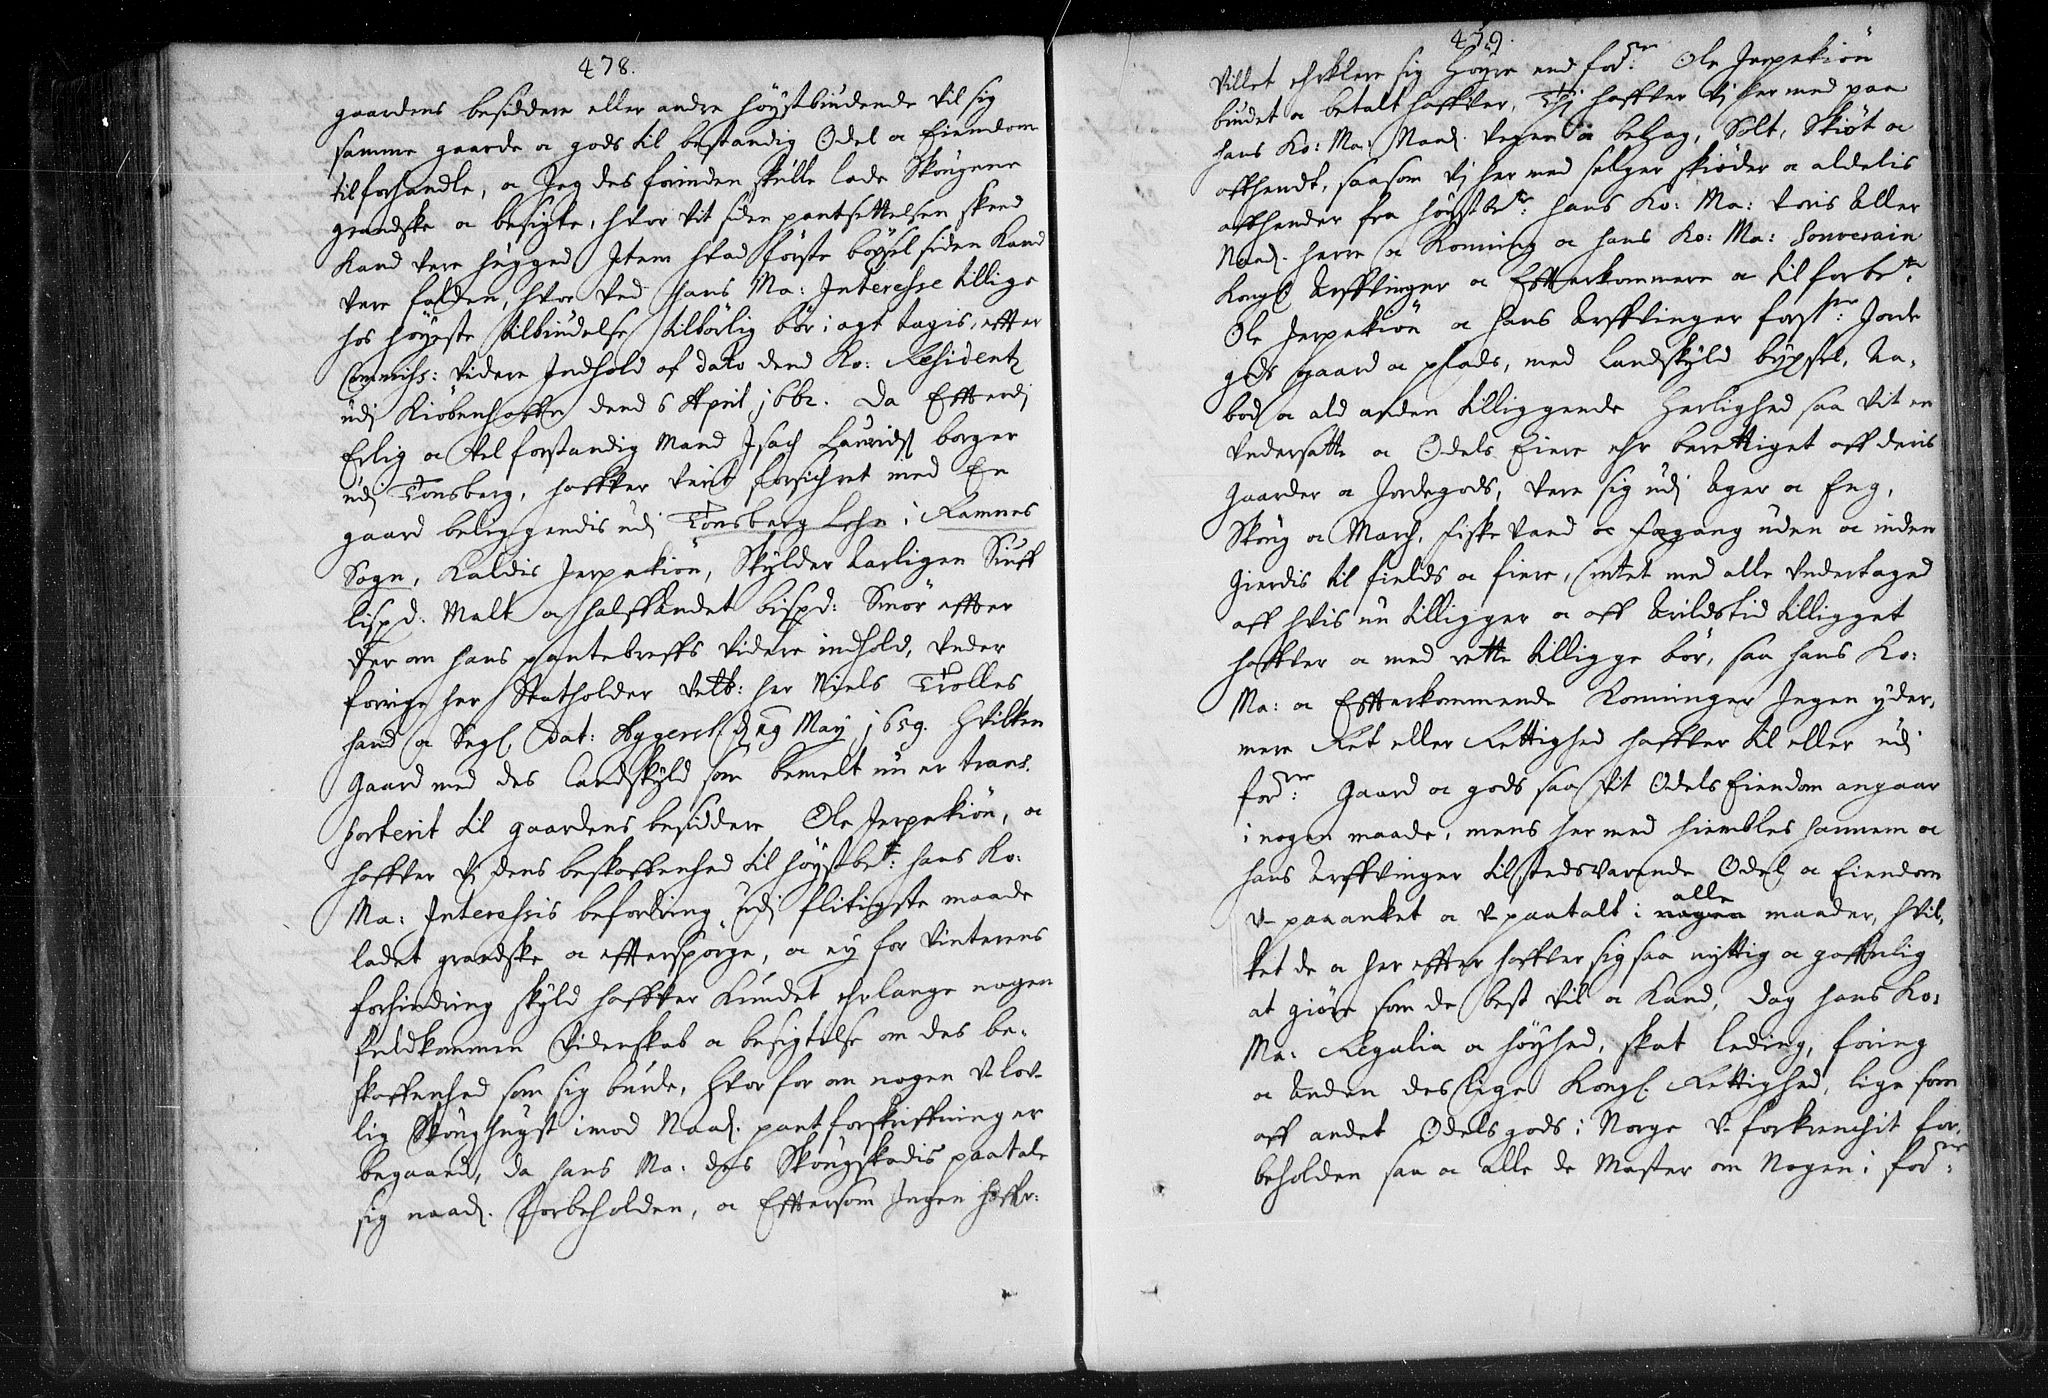 478.
gaardens besiddere eller andre høystbiudende vil sig
samme gaarde oc gods til bestandig Odel oc Eiendom
tilforhandle, oc Jeg des forinden skulle lade Skougene
grandske oc besigte, hvor vit siden pantsettelsen skeed
Kand vere hugged Item hvad første böxel siden Kand
vere falden, hvor ved hans Ma: Interesse tillige
hos høyeste tilbiudelse tilbörlig bör i agt tagis, efter
Commiss: videre Indhold af dato dend Ko: Residentz
udj Kiöbenhaffn dend 6 April 1662. Da Efterdj
Erlig oc Vel forstandig Mand Isach Lauridß borger
udj Tonsberg, haffver verit forsichret med En
gaard beliggendis udj Tönsberg Lehn i Ramnes
Sogn, Kaldis Jerpekiön, Skylder Aarligen Siuff
lispd. Malt oc halffandet bispd: Smör effter
der om hans pantebreffs videre indhold, under
forrige her Statholder Velb: her Niels Trolles
hand oc Segl. Dat: Aggersh. d 29 May 1659. Hvilken
Gaard med des Landskyld som bemelt nu er trans-
porterit til gaardens besiddere Ole Jerpekiön, oc
haffver vj dens beskaffenhed til høystbete: hans Ko:
Ma: Interessis befordring udj flitigste maade
ladet grandske oc effterspörge, oc ey for vinterens
forhindring skyld haffver kundet ehrlange nogen
fuldkommen Videnskab oc besigtelse om des be-
skaffenhed som sig burde, hvor for om nogen u-lov-
lig Skoughugst imod Naad. pantforskriffninger
begaaed, da hans Ma: des Skougskadis paatale
sig naad. forbeholden, oc Efftersom Ingen haffr:
479.
villet ehrklere sig høyre end forne: Ole Jerpekiön
budet oc betalt haffver, Thj haffver Vj her med paa
hans Ko: Ma: Naad. Vegne oc behag, Solt, Skiöt oc
affhendt, saasom Vj her med selger skiöder oc aldelis
affhender fra høystbete: hans Ko: Ma: Voris Aller
Naad. herre oc Konning oc hans Ko: Ma: Souverain
Kongl. Arffvinger oc Effterkommere oc til forbete:
Ole Jerpekiön oc hans Arffvinger forsre: Jorde
gods gaard oc plads, med Landskyld byxsel, Aa-
bod oc ald anden tilliggende Herlighed saa vit en
Undersatte oc Odels Eiere ehr berettiget aff deris
Gaarder oc Jordegods, vere sig udj Ager oc Eng,
Skoug oc March, fiske Vand oc Fægang uden oc inden
Gierdis til fields oc fiere, intet med alle Undertaged
aff hvis nu tilligger oc aff Arildstid tilligget
haffver oc med rette tilligge bör, saa hans Ko:
Ma: oc Effterkommende Konninger Ingen yder-
mere Ret eller Rettighed haffver til eller udj
forne: Gaard oc gods saa vit Odels Eiendom angaar
i nogen maade, mens her med hiembles hannem oc
hans Arffvinger til stedsvarende Odel oc Eiendom
u-paaanket oc u-paatalt i nogen alle maader, hvil-
ket de oc her effter haffver sig saa nyttig oc gaffnlig
at giöre som de best vil oc Kand, dog hans Ko:
Ma: Regalia oc höyhed, skat leding, foring
oc Anden deslige Kongl. Rettighed, lige som
aff andet Odels gods i Norge u-forkrenchit for-
beholden saa oc alle de Master om Nogen i forne: